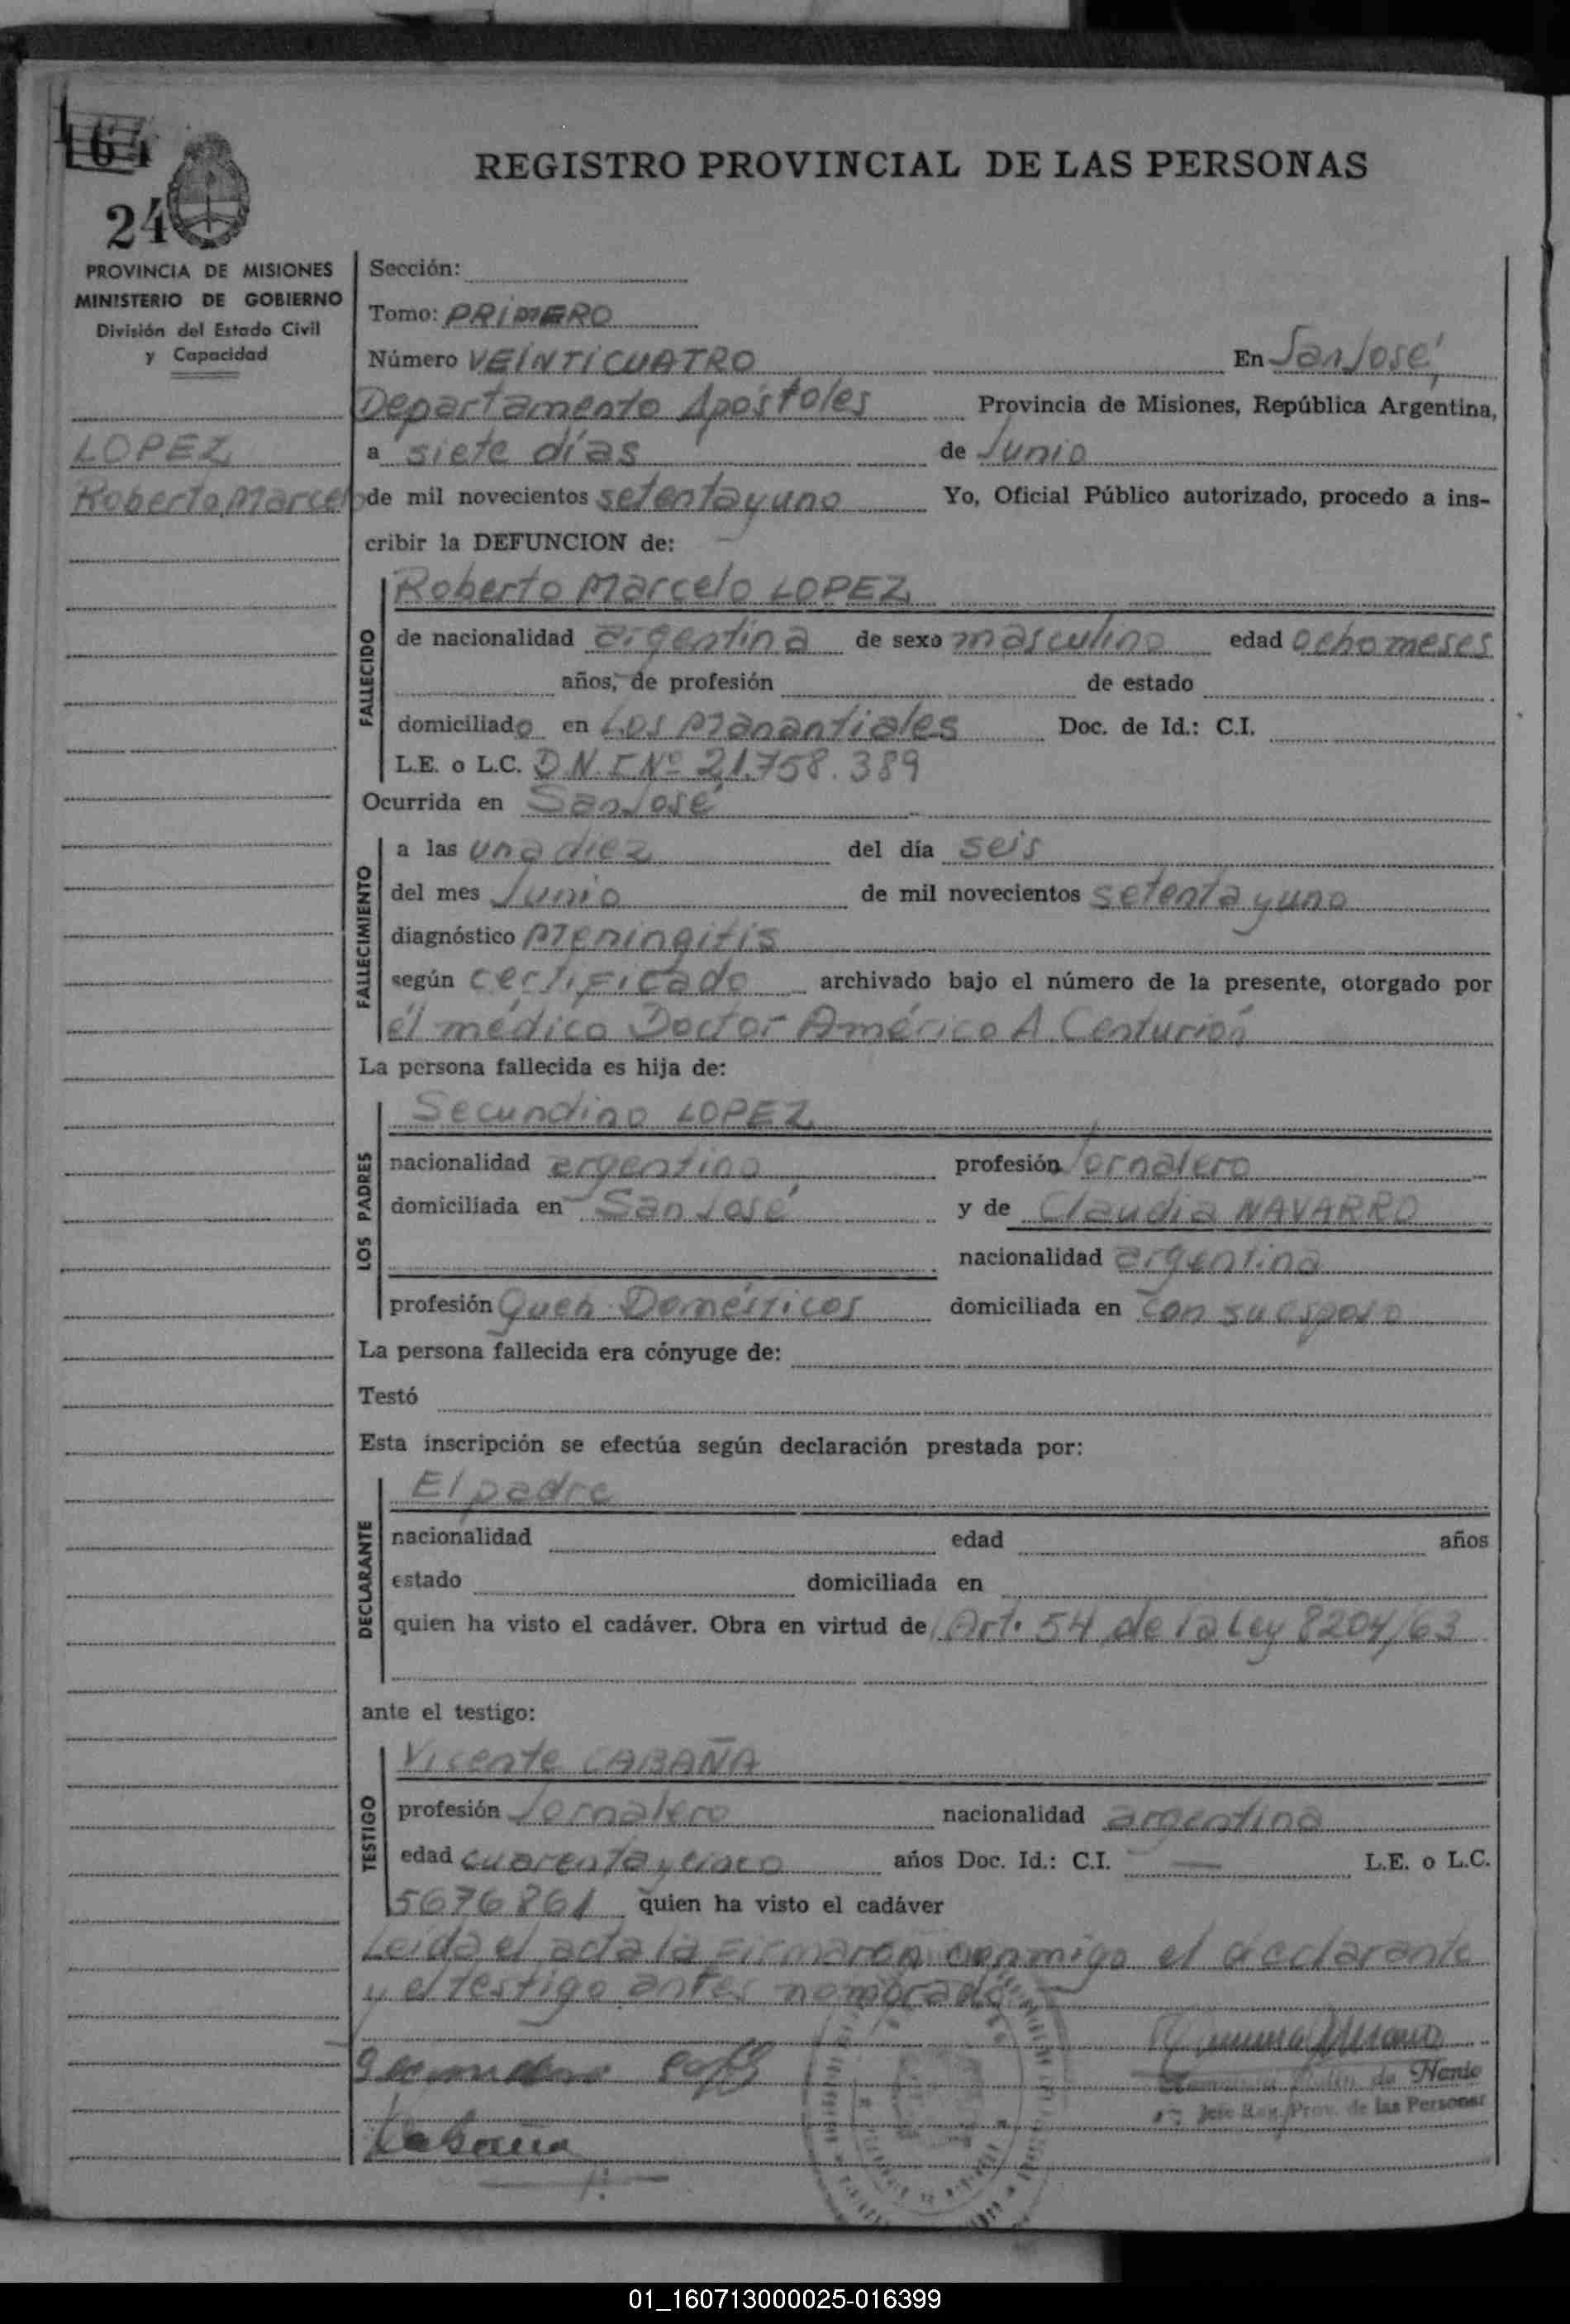 164
24
REGISTRO PROVINCIAL DE LAS PERSONAS
PROVINCIA DE MISIONES
MINISTERIO DE GOBIERNO
División del Estado Civil
y Capacidad
LOPEZ
Roberto Marcelo
Sección:
Tomo: PRIMERO
Número VEINTICUATRO En San José,
Departamento Apóstoles Provincia de Misiones, República Argentina,
a siete días de Junio
de mil novecientos setenta y uno Yo, Oficial Público autorizado, procedo a ins-
cribir la DEFUNCION de:
FALLECIDO
Roberto Marcelo LOPEZ
de nacionalidad argentina de sexo masculino edad ocho meses
años, de profesión de estado
domiciliado en Los Manantiales Doc. de Id.: C.I.
L.E. o L.C. D.N.I Nº 21.758.389
Ocurrida en San José
FALLECIMIENTO
a las una diez del día seis
del mes Junio de mil novecientos setenta y uno
diagnóstico Meningitis
según certificado archivado bajo el número de la presente, otorgado por
él médico Doctor Américo A. Centurión
La persona fallecida es hija de:
LOS PADRES
Secundino LOPEZ
nacionalidad argentino profesión Jornalero
domiciliada en San José y de Claudia NAVARRO
nacionalidad argentina
profesión Queh. Domésticos domiciliada en con su esposo
La persona fallecida era cónyuge de:
Testó
Esta inscripción se efectúa según declaración prestada por:
DECLARANTE
El padre
nacionalidad edad años
estado domiciliada en
quien ha visto el cadáver. Obra en virtud de Art. 54 de la Ley 8204/63
ante el testigo:
TESTIGO
Vicente CABAÑA
profesión Jornalero nacionalidad argentina
edad cuarenta y cinco años Doc. Id.: C.I. — L.E. o L.C.
5676861 quien ha visto el cadáver
Leida el acta la firmaron conmigo el declarante
y el testigo antes nombrado
de Nanio
Jefe Reg. Prov. de las Personas
Cabaña
01_160713000025-016399